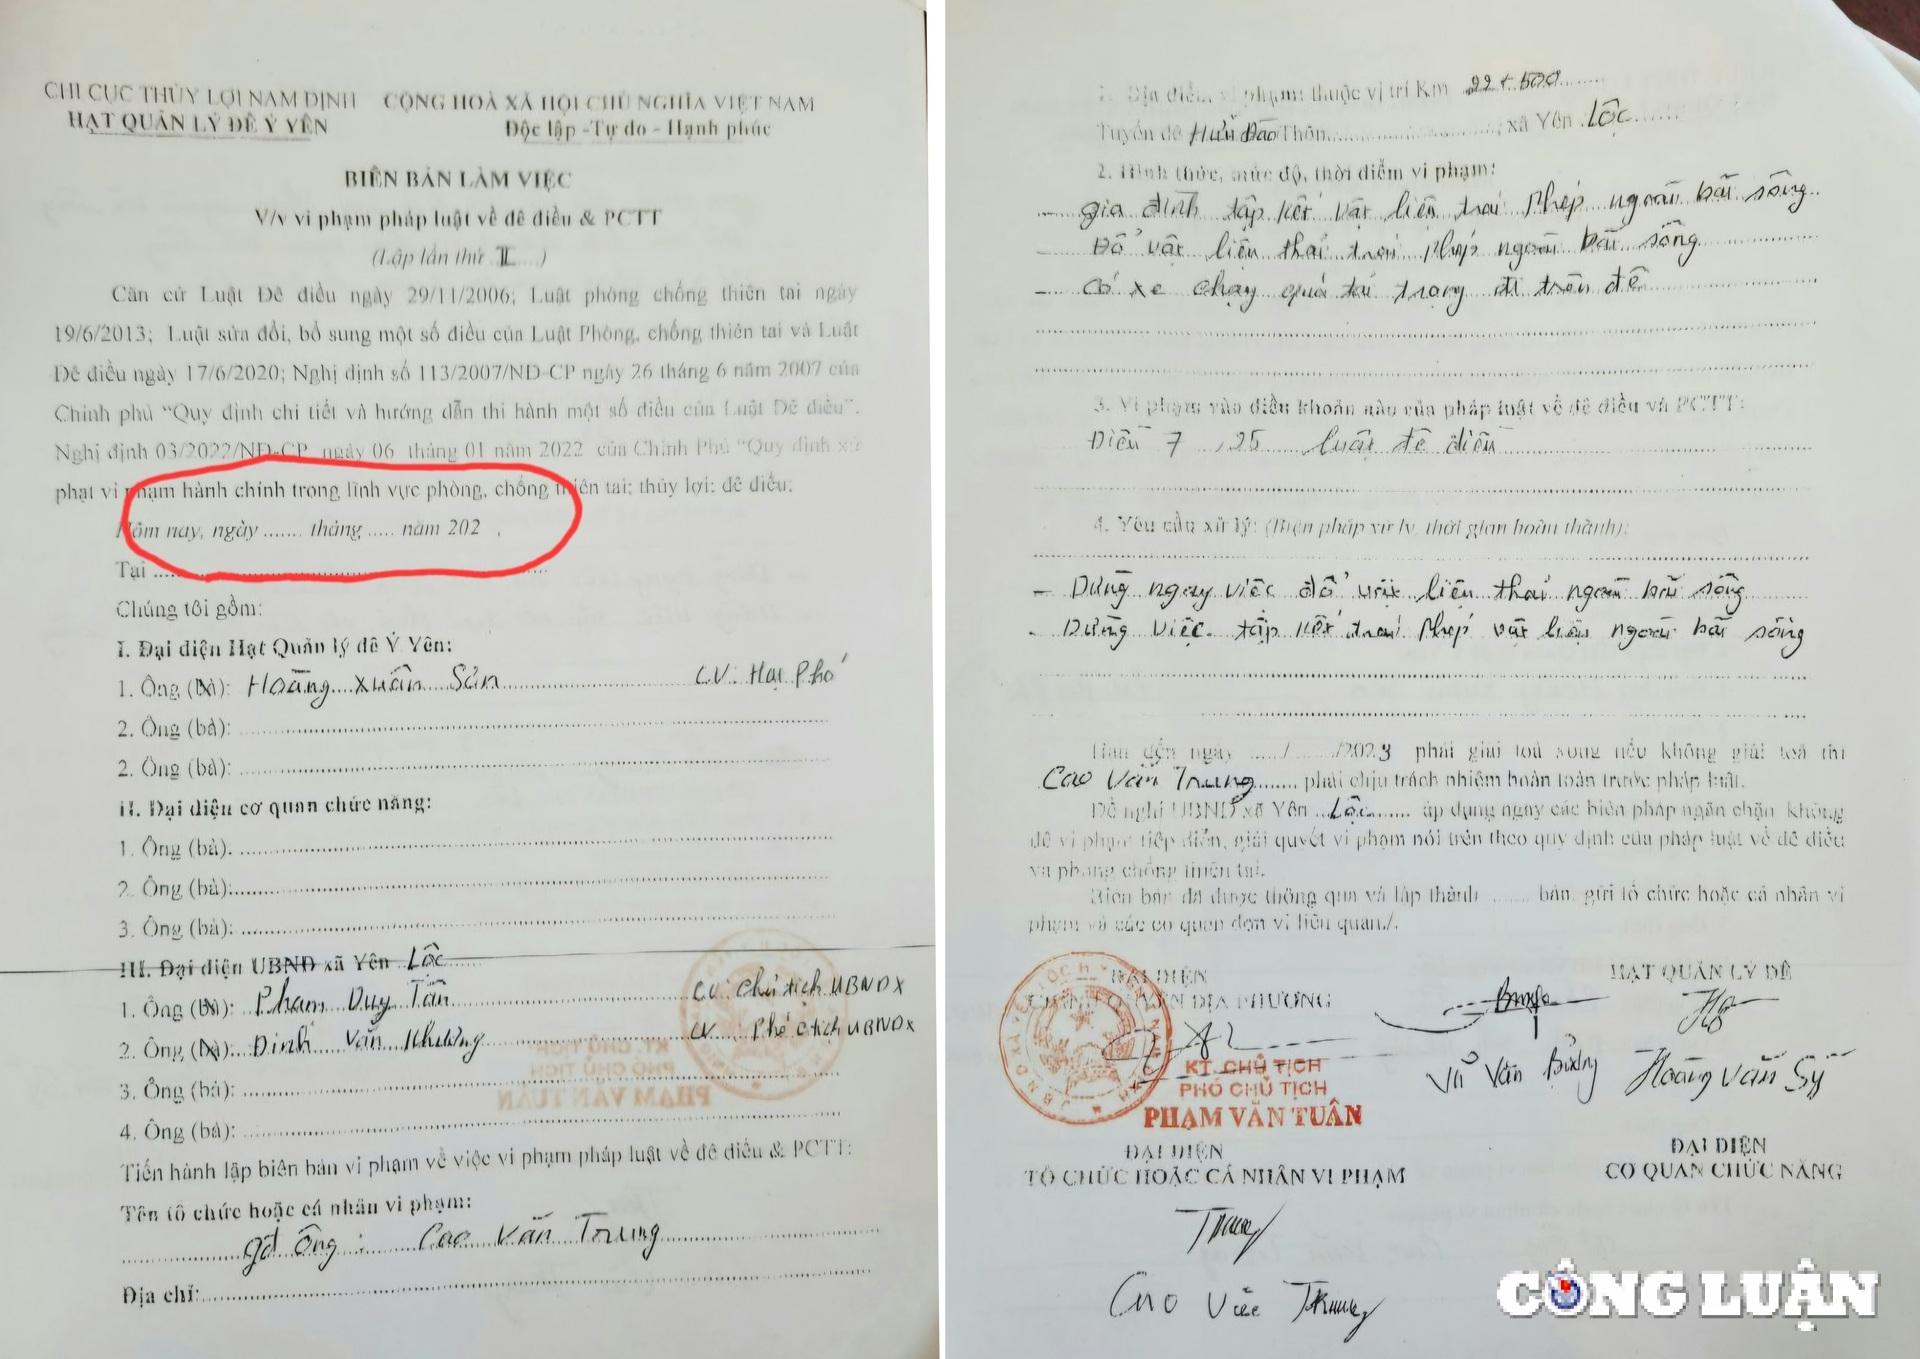 CHI CỤC THỦY LỢI NAM ĐỊNH
HẠT QUẢN LÝ ĐÊ Ý YÊN
CỘNG HOÀ XÃ HỘI CHỦ NGHĨA VIỆT NAM
Độc lập -Tự do - Hạnh phúc
BIÊN BẢN LÀM VIỆC
V/v vi phạm pháp luật về đê điều & PCTT
(Lập lần thứ I......)
Căn cứ Luật Đê điều ngày 29/11/2006; Luật phòng chống thiên tai ngày
19/6/2013; Luật sửa đổi, bổ sung một số điều của Luật Phòng, chống thiên tai và Luật
Đê điều ngày 17/6/2020; Nghị định số 113/2007/NĐ-CP ngày 26 tháng 6 năm 2007 của
Chính phủ “Quy định chi tiết và hướng dẫn thi hành một số điều của Luật Đê điều”.
Nghị định 03/2022/NĐ-CP ngày 06 tháng 01 năm 2022 của Chính Phủ “Quy định xử
phạt vi phạm hành chính trong lĩnh vực phòng, chống thiên tai; thủy lợi; đê điều;
Hôm nay, ngày ....... tháng ..... năm 202 .
Tại ..........
Chúng tôi gồm:
I. Đại diện Hạt Quản lý đê Ý Yên:
1. Ông (bà): Hoàng Xuân Sản CV: Hạt Phó
2. Ông (bà): ..........
2. Ông (bà): ..........
II. Đại diện cơ quan chức năng:
1. Ông (bà). ..........
2. Ông (bà):..........
3. Ông (bà): ..........
III. Đại diện UBND xã Yên Lộc
1. Ông (bà): Phạm Duy Tân CV: chủ tịch UBNDX
2. Ông (bà): Đinh Văn Khương CV: Phó ctịch UBNDX
3. Ông (bà): ..........
4. Ông (bà): ..........
Tiến hành lập biên bản vi phạm về việc vi phạm pháp luật về đê điều & PCTT:
Tên tổ chức hoặc cá nhân vi phạm:
gđ ông : Cao Văn Trung
Địa chỉ:..........
1. Địa điểm vi phạm: thuộc vị trí Km 22 + 500
Tuyến đê Hữu Đào Thôn..........; xã Yên Lộc
2. Hình thức, mức độ, thời điểm vi phạm:
- gia đình tập kết vật liệu trái phép ngoài bãi sông
- Đổ vật liệu thải trái phép ngoài bãi sông
- Có xe chạy quá tải trọng đi trên đê
3. Vi phạm vào điều khoản nào của pháp luật về đê điều và PCTT:
Điều 7 , 25 luật đê điều
4. Yêu cầu xử lý: (Biện pháp xử lý, thời gian hoàn thành):
- Dừng ngay việc đổ vật liệu thải ngoài bãi sông
- Dừng việc tập kết trái phép vật liệu ngoài bãi sông
Hạn đến ngày ...../....../2023 phải giải toả xong nếu không giải toả thì
Cao Văn Trung ....... phải chịu trách nhiệm hoàn toàn trước pháp luật.
Đề nghị UBND xã Yên Lộc áp dụng ngay các biện pháp ngăn chặn không
để vi phạm tiếp diễn, giải quyết vi phạm nói trên theo quy định của pháp luật về đê điều
và phòng chống thiên tai.
Biên bản đã được thông qua và lập thành ....... bản, gửi tổ chức hoặc cá nhân vi
phạm và các cơ quan đơn vị liên quan./.
ĐẠI DIỆN
CHÍNH QUYỀN ĐỊA PHƯƠNG
HẠT QUẢN LÝ ĐÊ
KT. CHỦ TỊCH
PHÓ CHỦ TỊCH
PHẠM VĂN TUÂN
Vũ Văn Hoàng Văn Sỹ
ĐẠI DIỆN
TỔ CHỨC HOẶC CÁ NHÂN VI PHẠM
ĐẠI DIỆN
CƠ QUAN CHỨC NĂNG
Trung
Cao Văn Trung
CÔNG LUẬN